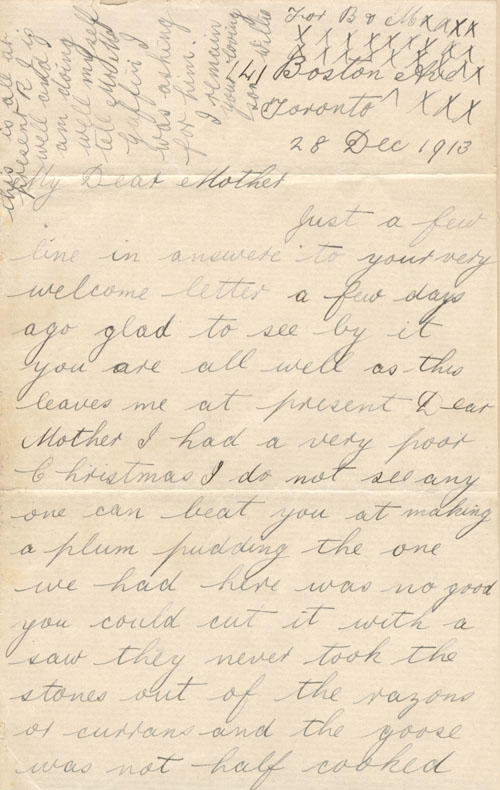 For B & M x x xx
x x x x x x x x x
x x x x x x x x x
141 Boston Ave
Toronto ^ x x x
28 Dec 1913
My Dear Mother
Just a few
line in answere to your very
welcome letter a few days
ago glad to see by it
you are all well as this
leaves me at present Dear
Mother I had a very poor
Christmas I do not see any
one can beat you at making
a plum pudding the one
we had here was no good
you could cut it with a
saw they never took the
stones out of the razons
or currans and the goose
was not half cooked
this is all at
present
well and I
am doing
well myself
tell
I
was asking
for him.
I remain
your loving
son Willie